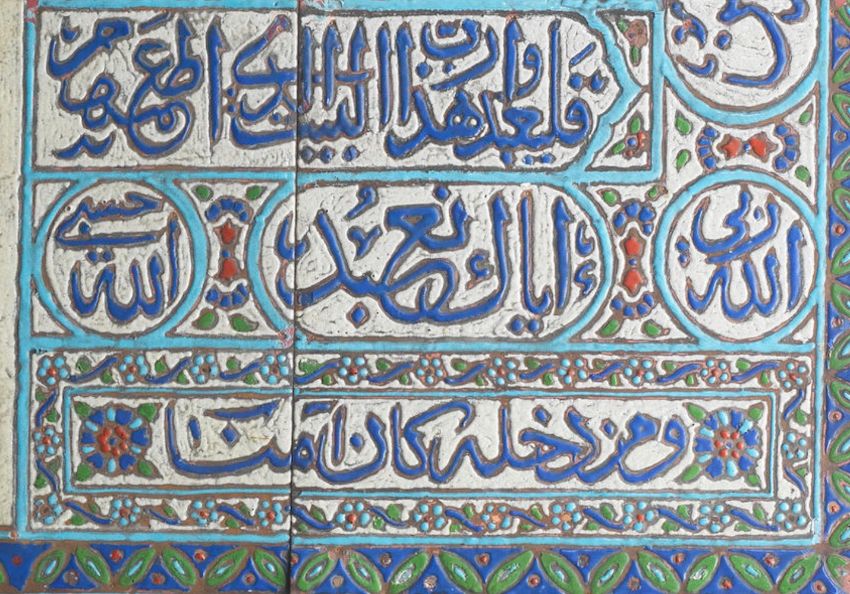 فليعبدوا رب هذا البيت الذي اطعمهم
الله ربي
اياك نعبد
الله حسبي
ومن دخله كان امنا